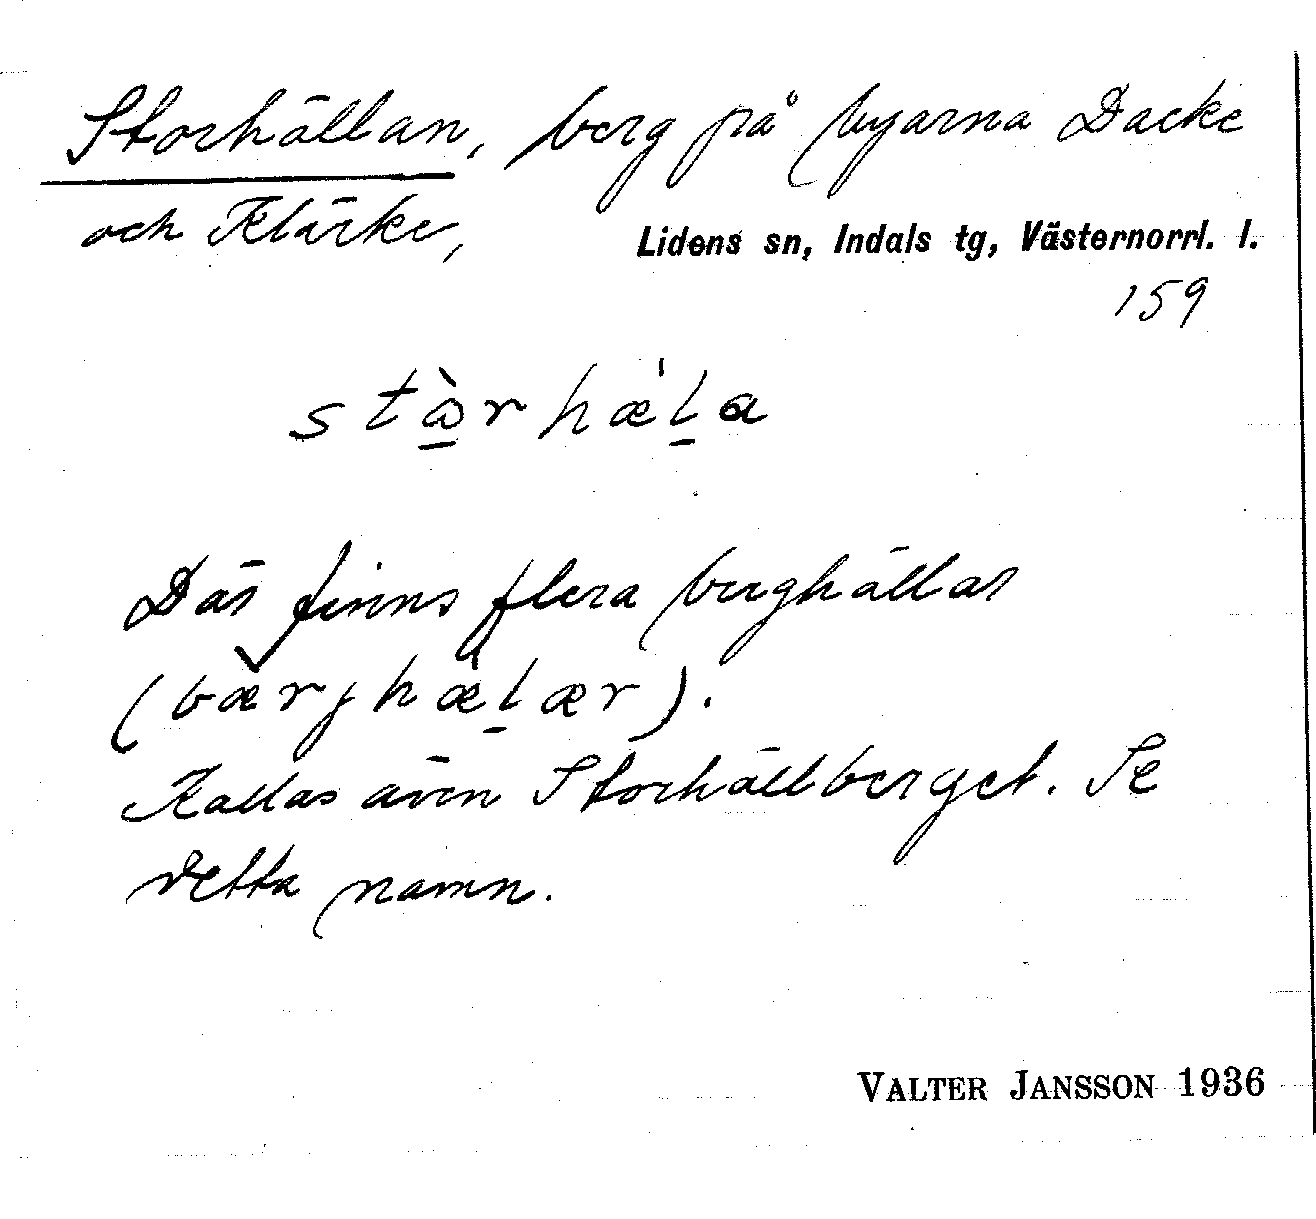 Storhällan, berg på byarna Dacke
och Kläcke,
Lidens sn, Indals tg, Västernorrl. l.
159
stɷ̱̀rhæ̍ḻa
Där finns flera berghällar
(bærjhæ̍ḻær).
Kallas även Storhällberget. Se
detta namn.
VALTER JANSSON 1936